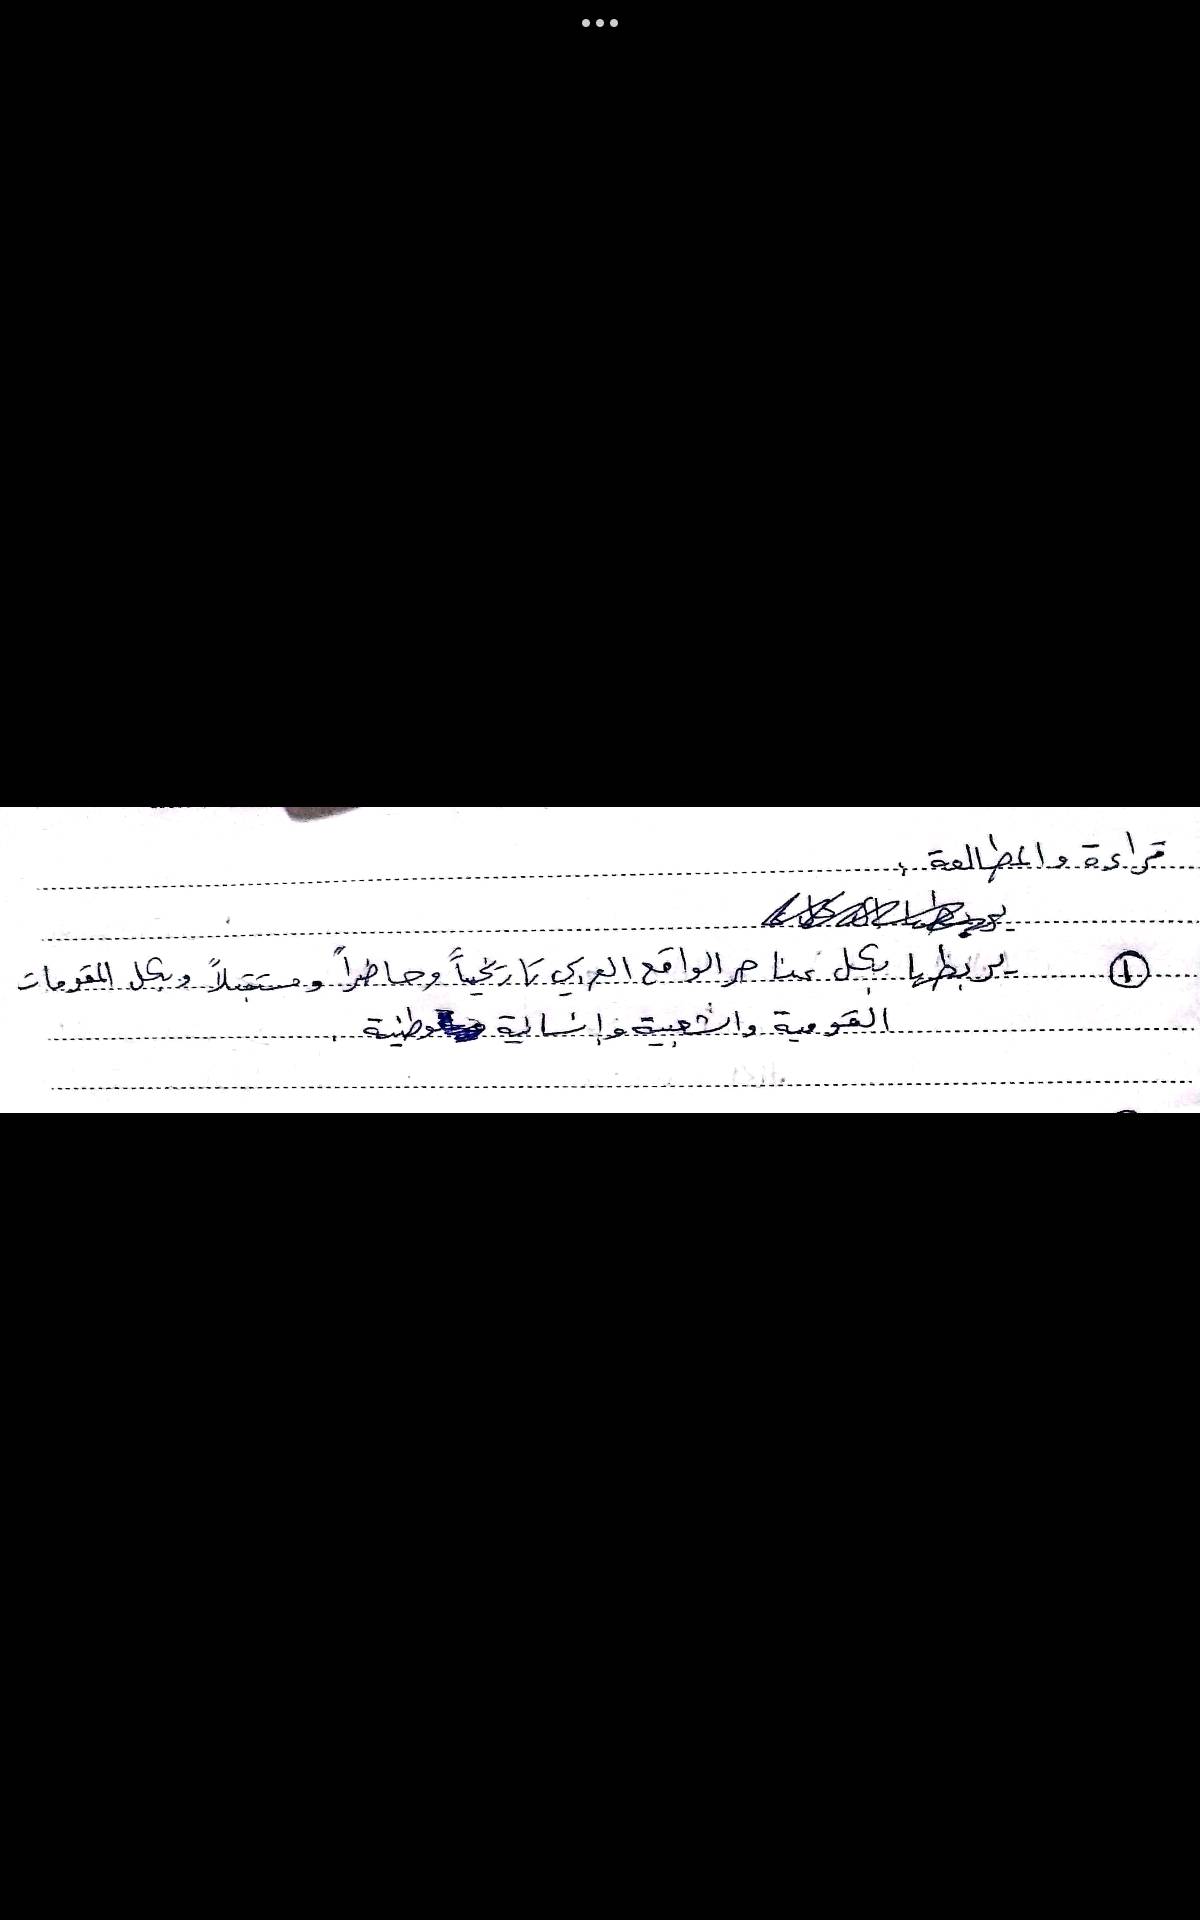 قراءة والمطالعة :
يربطها بكل عناصر الواقع العربي تاريخياً وحاضراً ومستقبلاً وبكل المقومات ①
القومية والشعبية وإنسانية وطنية .